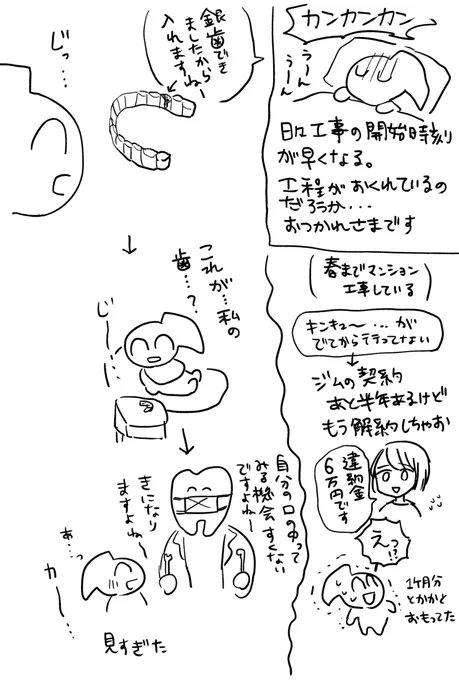 カンカンカン
うーん
うーん
日に日に工事の開始時刻
が早くなる。
工程がおくれているの
だろうか・・・
おつかれさまです
春までマンション
工事している
キンキュ〜・・・が
でてから行ってない
ジムの契約
あと半年あるけど
もう解約しちゃお
違約金
6万円です
えっ!?
1ヶ月分
とかかと
おもってた
銀歯でき
ましたから
入れますねー
じっ・・・
これが・・・私の
歯・・・?
じー
自分の口の中って
みる機会すくない
ですよねー
きになり
ますよねー
あ・・・っ
カー・・・
見すぎた